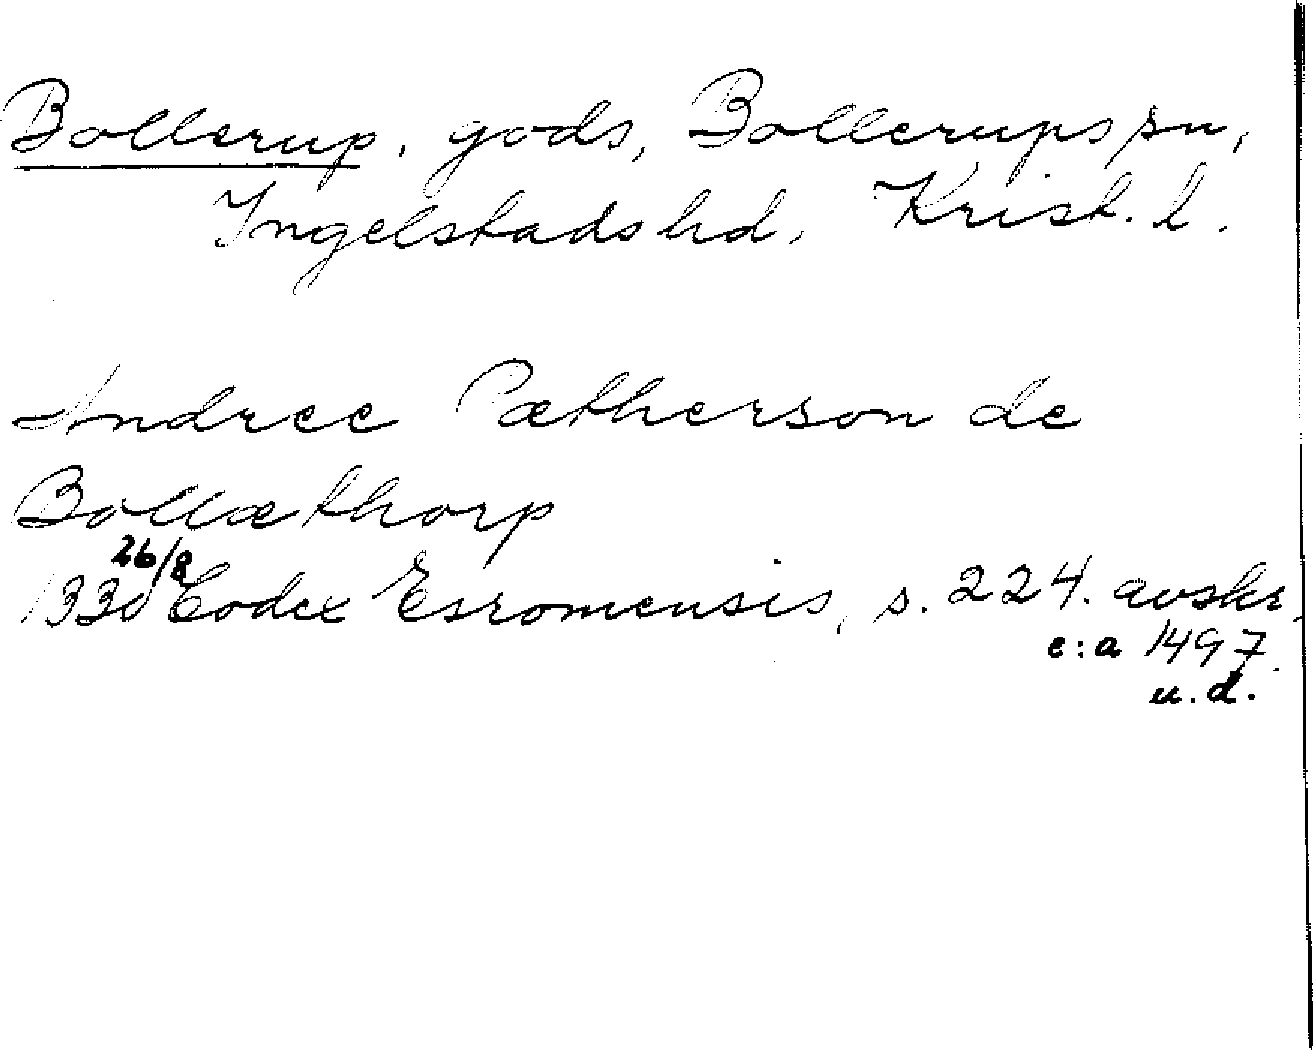 Bollerup, gods, Bollerups sn,
Ingelstads hd, Krist. l.
Andree Pætherson de
Bollæthorp
26/8
1330 Codex Esromensis, s. 224. avskr.
c:a 1497.
u.d.